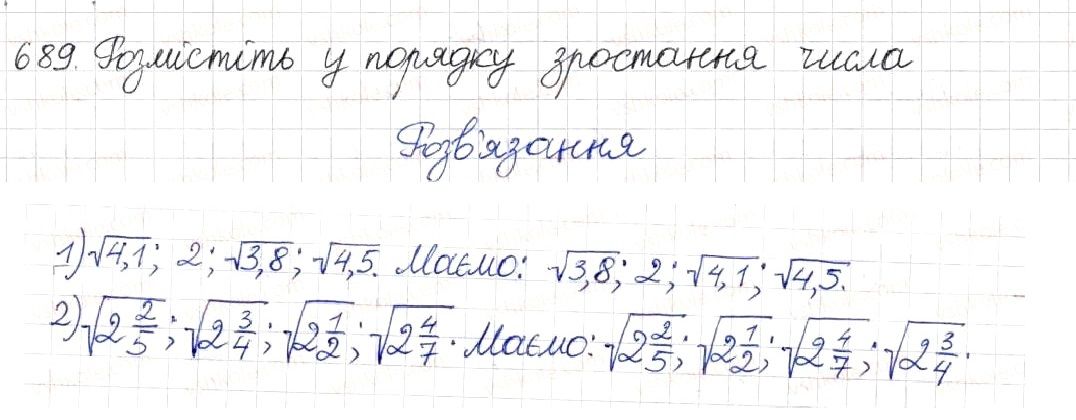 689. Розмістіть у порядку зростання числа
Розв'язання
1) √4,1; 2; √3,8; √4,5. Маємо: √3,8; 2; √4,1; √4,5.
2) √2 2/5; √2 3/4; √2 1/2; √2 4/7. Маємо: √2 2/5; √2 1/2; √2 4/7; √2 3/4.